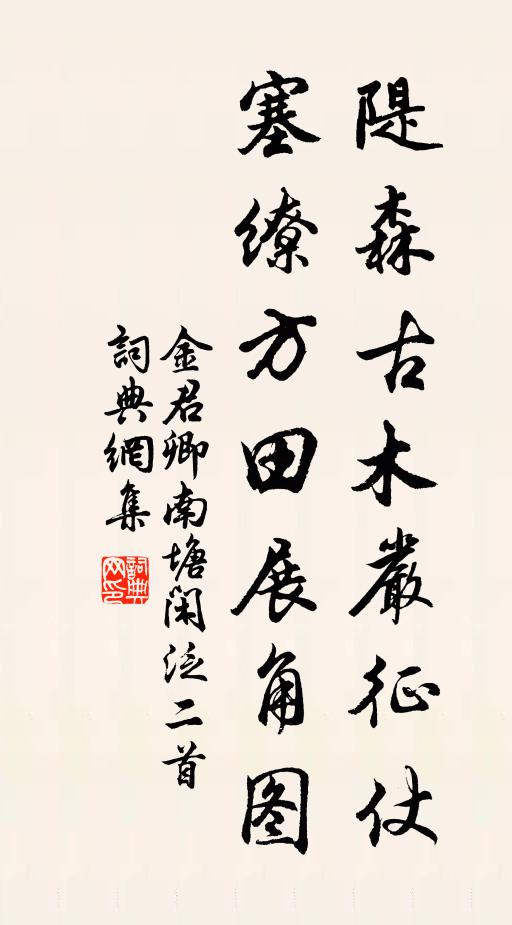 隄森古木嚴征仗
塞繚方田展角图
金君卿南塘闲泛二首
詞典網集
詞典网印